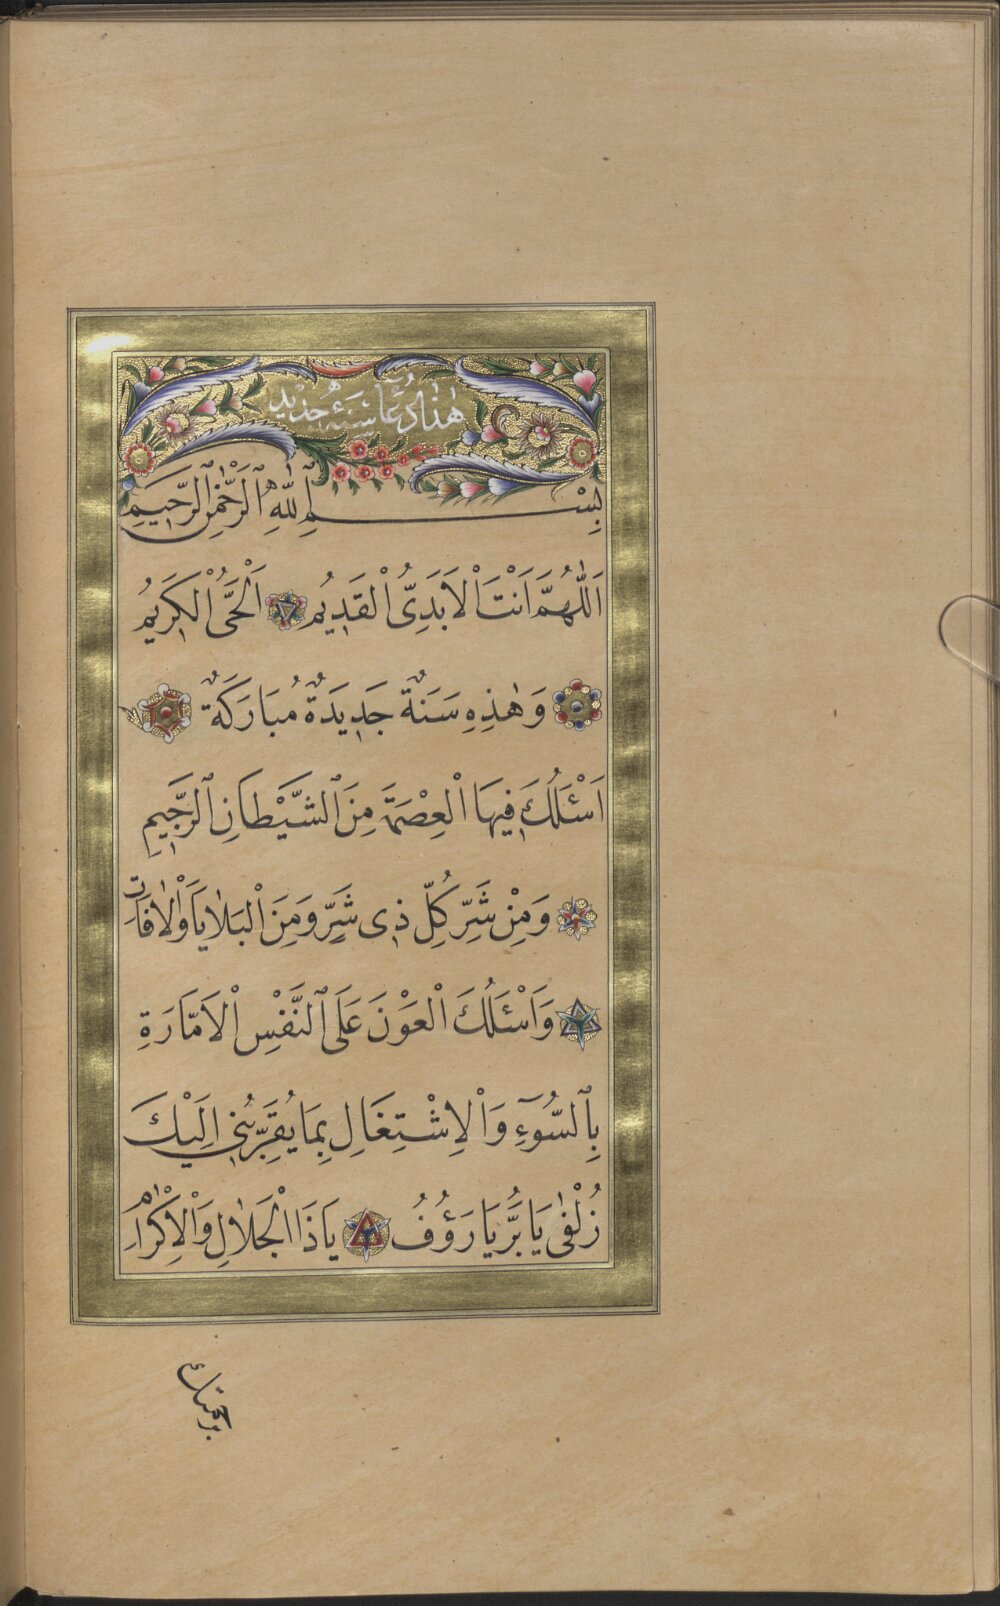 هٰذَا دُعَاءُ سَنَةِ جَدِيدٍ
بِسْمِ ٱللّٰهِ ٱلرَّحْمٰنِ ٱلرَّحِيمِ
اَللّٰهُمَّ اَنْتَ اْلاَبَدِىُّ اْلقَدِيمُ اَلْحَىُّ اْلكَرِيمُ
وَهٰذِهِ سَنَةٌ جَدِيدَةٌ مُبَارَكَةٌ
اَسْئَلُكَ فِيهَا اْلعِصْمَةَ مِنَ ٱلشَّيْطَانِ ٱلرَّجِيمِ
وَمِنْ شَرِّ كُلِّ ذِى شَرٍّ وَمِنَ اْلبَلاٰيَا وَاْلاٰفَاتِ
وَاَسْئَلُكَ اْلعَوْنَ عَلَى ٱلنَّفْسِ اْلاَمَّارَةِ
بِٱلسُّوٓءِ وَاْلاِشْتِغَالِ بِمَا يُقَرِّبُنِى اِلَيْكَ
زُلْفٰى يَا بَرُّ يَا رَؤُفُ يَا ذَا اْلجَلاٰلِ وَاْلاِكْرَامِ
برحمتك